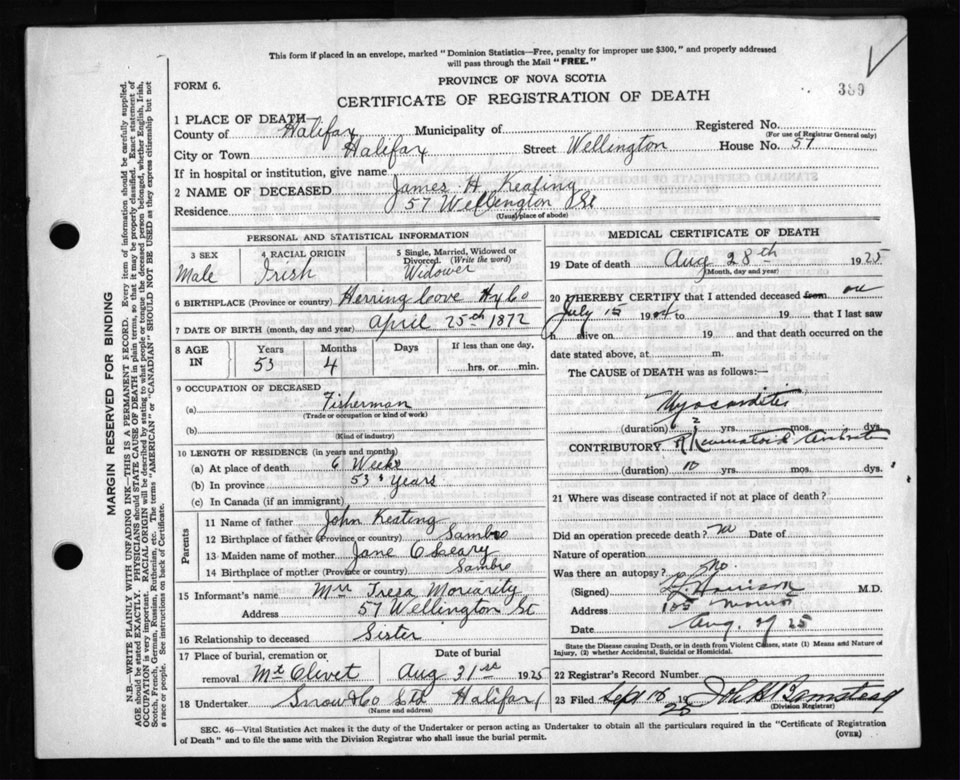 This form if placed in an envelope, marked "Dominion Statistics—Free, penalty for improper use $300," and properly addressed
will pass through the Mail "FREE."
FORM 6.
PROVINCE OF NOVA SCOTIA
389
CERTIFICATE OF REGISTRATION OF DEATH
1 PLACE OF DEATH
County of Halifax Municipality of Registered No.
(For use of Registrar General only)
City or Town Halifax Street Wellington House No. 57
If in hospital or institution, give name
2 NAME OF DECEASED James H Keating
Residence 57 Wellington St
(Usual place of abode)
PERSONAL AND STATISTICAL INFORMATION
3 SEX 4 RACIAL ORIGIN 5 Single, Married, Widowed or
Divorced. (Write the word)
Male Irish Widower
6 BIRTHPLACE (Province or country) Herring Cove Hfx Co
7 DATE OF BIRTH (month, day and year) April 25th 1872
8 AGE IN Years Months Days If less than one day,
53 4 hrs. or min.
9 OCCUPATION OF DECEASED
(a) Fisherman
(Trade or occupation or kind of work)
(b)
(Kind of industry)
10 LENGTH OF RESIDENCE (in years and months)
(a) At place of death 6 Weeks
(b) In province 53 Years
(c) In Canada (if an immigrant)
Parents
11 Name of father John Keating
12 Birthplace of father (Province or country) Sambro
13 Maiden name of mother Jane O'Leary
14 Birthplace of mother (Province or country) Sambro
15 Informant's name Mrs Tresa Moriarity
Address 57 Wellington St
16 Relationship to deceased Sister
17 Place of burial, cremation or Date of burial
removal Mt Olivet Aug 31st 1925
18 Undertaker Snow & Co Ltd Halifax
(Name and address)
MEDICAL CERTIFICATE OF DEATH
19 Date of death Aug 28th 1925
(Month, day and year)
20 I HEREBY CERTIFY that I attended deceased from on
July 15 19 to 19 that I last saw
h alive on 19 and that death occurred on the
date stated above, at m.
The CAUSE of DEATH was as follows:—
Myocarditis
(duration) yrs. mos. dys.
CONTRIBUTORY Rheumatoid Arthritis
(duration) 10 yrs. mos. dys.
21 Where was disease contracted if not at place of death?
Did an operation precede death? no Date of
Nature of operation
Was there an autopsy? no
(Signed) Morrison M.D.
Address
Date Aug. 29 25
State the Disease causing Death, or in death from Violent Causes, state (1) Means and Nature of
Injury, (2) whether Accidental, Suicidal or Homicidal.
22 Registrar's Record Number
23 Filed Sept 18 1925
(Division Registrar)
SEC. 46—Vital Statistics Act makes it the duty of the Undertaker or person acting as Undertaker to obtain all the particulars required in the "Certificate of Registration
of Death" and to file the same with the Division Registrar who shall issue the burial permit.
(OVER)
MARGIN RESERVED FOR BINDING
N.B.—WRITE PLAINLY WITH UNFADING INK—THIS IS A PERMANENT RECORD. Every item of information should be carefully supplied.
AGE should be stated EXACTLY. PHYSICIANS should STATE CAUSE OF DEATH in plain terms, so that it may be properly classified. Exact statement of
OCCUPATION is very important. RACIAL ORIGIN will be described by stating to what people or tongue the deceased person belonged, whether English, Irish,
Scotch, French, German, Russian, Ruthenian, etc. The terms "AMERICAN" or "CANADIAN" SHOULD NOT BE USED as they express citizenship but not
a race or people. See instructions on back of Certificate.